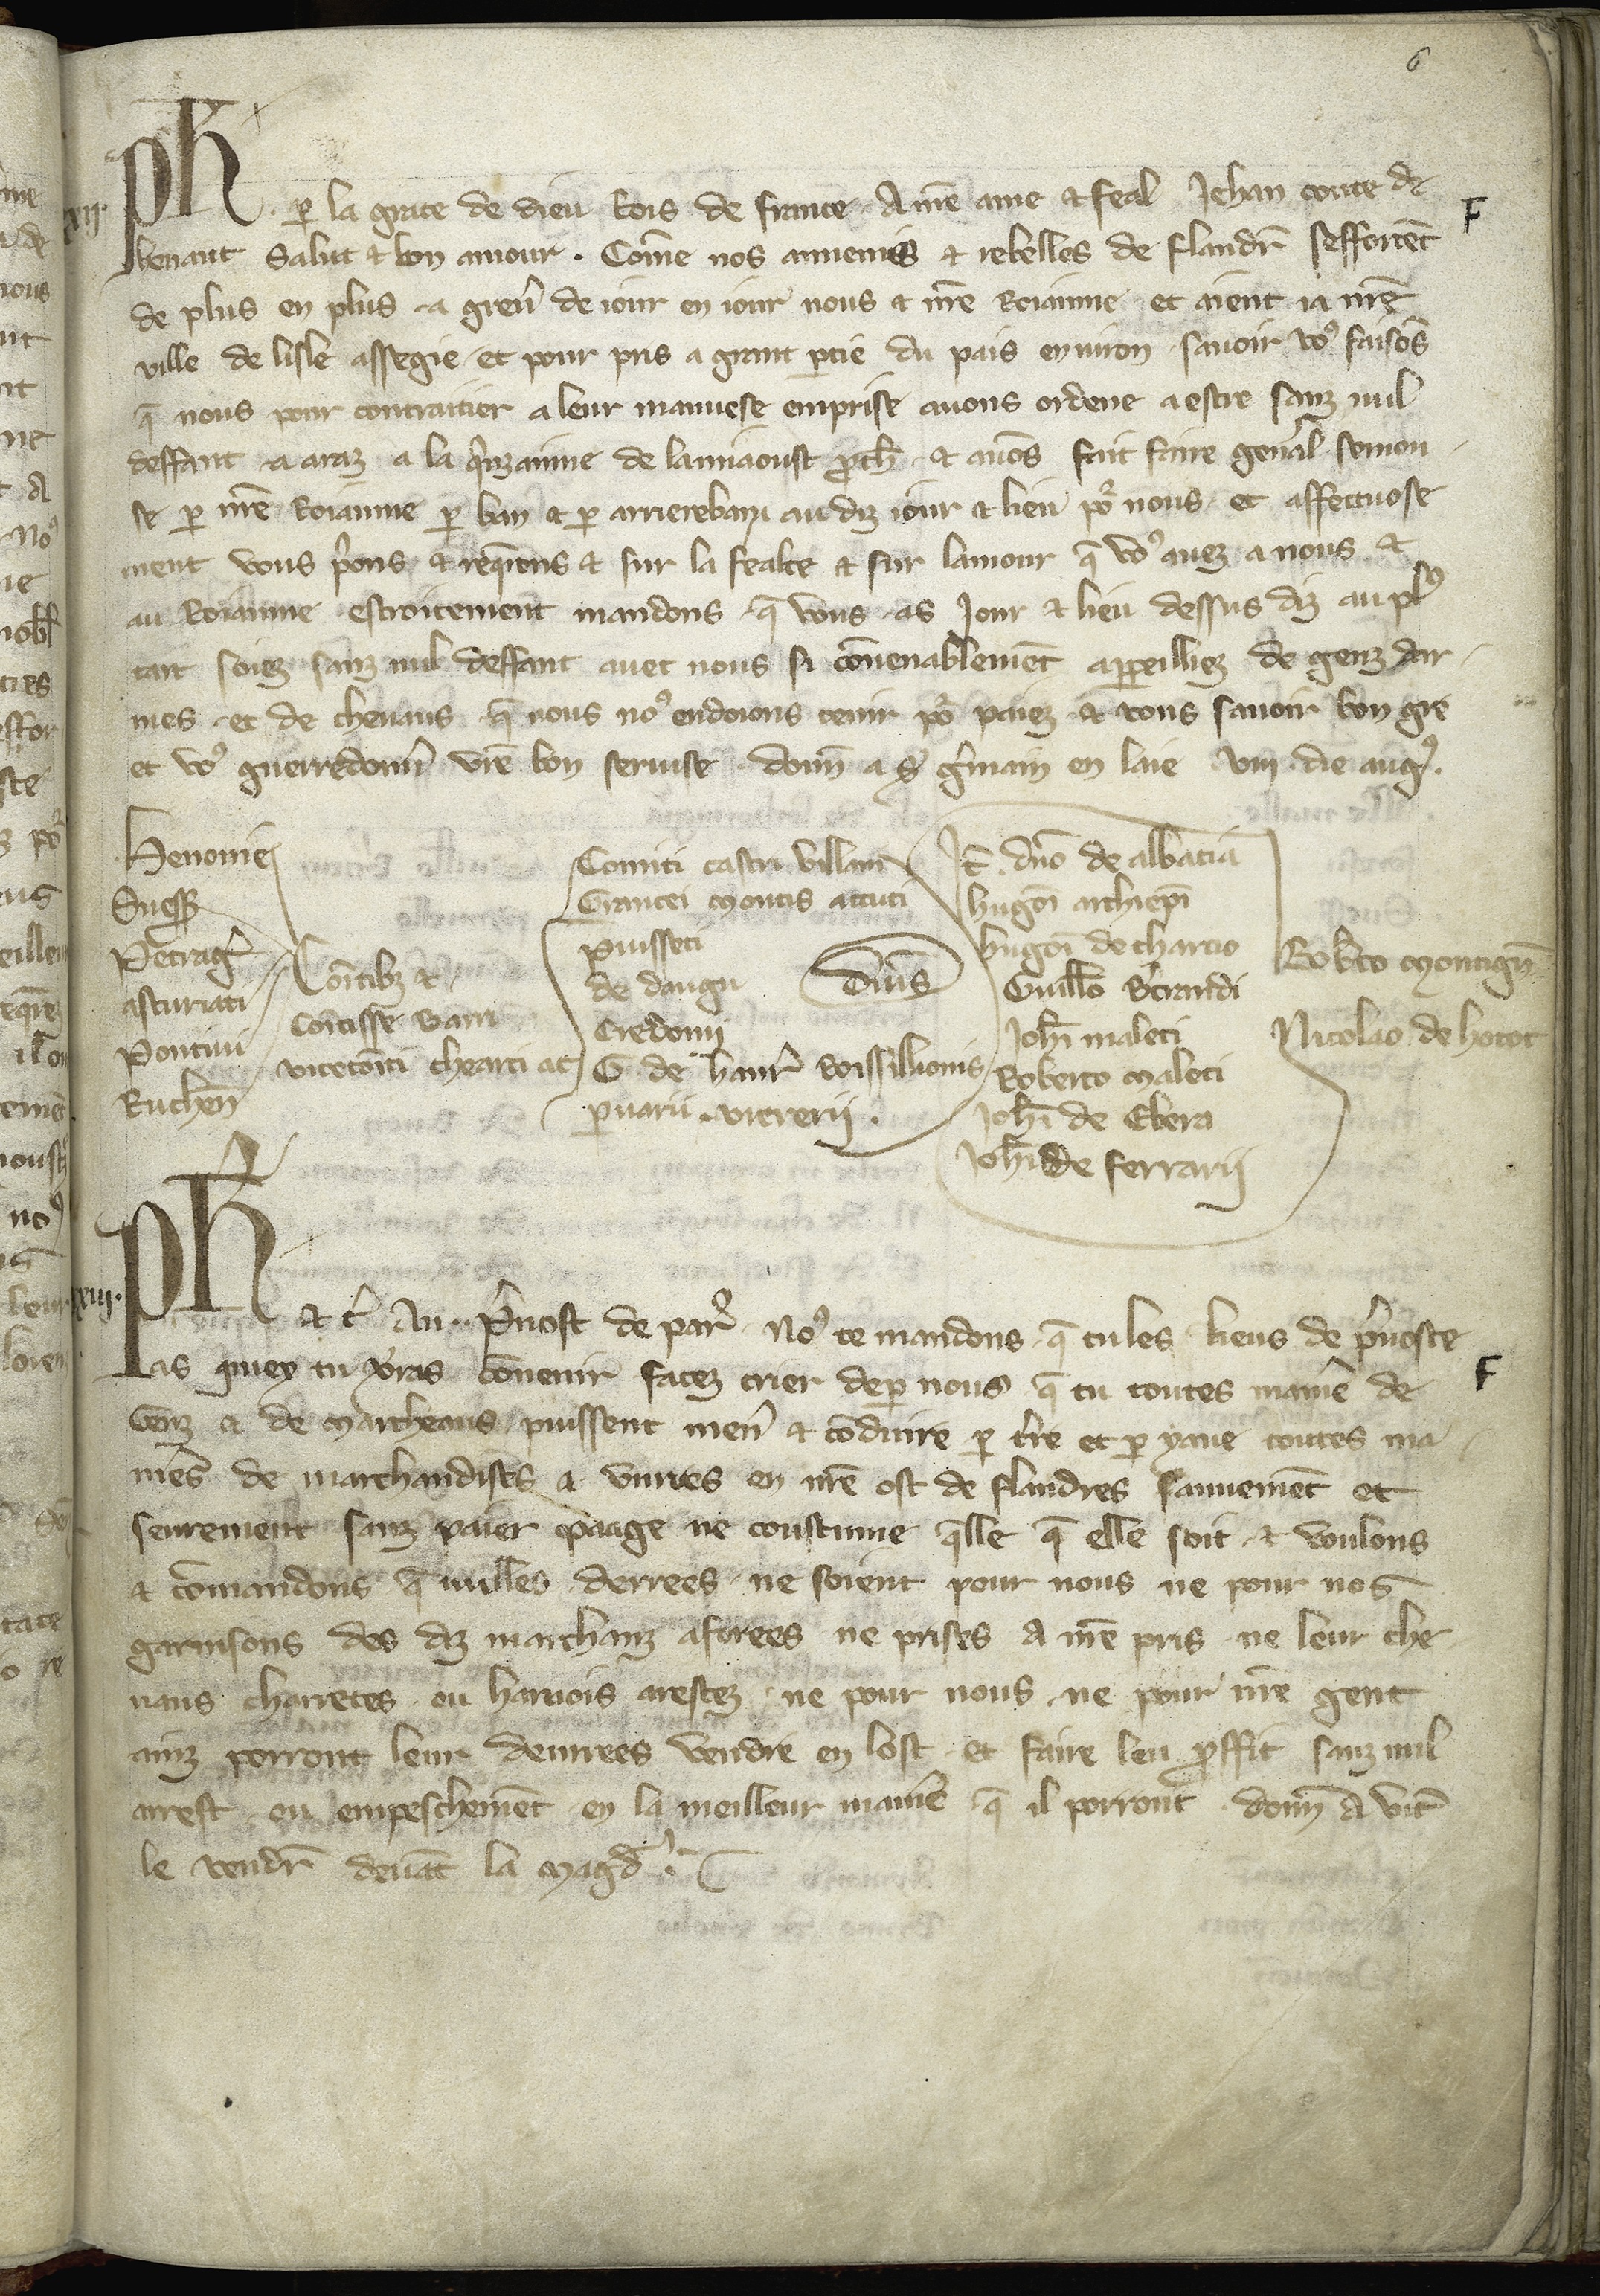 6
xij.
Ph. p̱ la grace de dieu Rois de france A nr̄e ame & feal Jehan conte de
henaut Salut & bon amour . Com̄e nos anemis & rebelles de flandr̄ sefforcēt
de plus en plus a greu̾ de iour en iour nous & nr̄e Roiaume et aient ia nr̄e
ville de lisle assegie et pour pris a grant p̱tie du pais enuiron sauoir voꝰ faisōs
q̄ nous pour contraitier a leur mauuese emprise auons ordene a estre sanz nul
deffaut a araz a la q̾nzainne de lamiaoust ꝓch̄ & auōs fait faire gen̾al semon
se p̱ nr̄e Roiaume p̱ ban & p̱ arriereban au diz iour & lieu po̾ nous et affectuose
ment vous p̾ons & req̄rons & sur la fealte & sur lamour q̄ voꝰ auez a nous &
au Roiaume estroitement mandons q̄ vous as Jour & lieu dessus diz au plꝰ
tart soiez sanz nul deffaut auec nous si cōuenablemēt ap̱eilliez de genz dar
mes et de cheuaus q̄ nous noꝰ endoions tenir po̾ paiez & vous sauoir bon gre
et voꝰ guerredonn̾ vr̄e bon seruise . donn̄ a S̄ g̾main en laie viij die augꝰ.
Henonie
Suess̄
Petrag̾
asturiati
Pontiui
Ruthen̄
Com̄tibꝫ &
Com̄tisse
vicecom̄ti
Comiti castri Villani
Grancei montis acuti
puisseti
de daugu
Credonii
G de haur̾ Rossillionis
Dn̄is
E. dn̄o de
hugoī archiep̄i
hugoī de
Guill̄o B̾randi
Joh̄i maleti
Roberto maleti
Joh̄i de Ebera
Joh̄i de ferrarii
Rob̾to
Nicolao de hotot
F
xiij.
Ph & c̾ Au . P̾uost de par̾ . Noꝰ te mandons q̄ tu les lieus de p̾uoste
as quiex tu v̾ras cōuenir facez crier dep̱ nous q̄ tu toutes manie̾ de
genz & de marcheans puissent men̾ & cōduire p̱ t̾re et p̱ yaue toutes ma
nie̾s de marchandises & viures en nr̄e ost de flandres sauuemēt et
seurement sanz paier paage ne coustume q̄lle q̄ elle soit & voulons
& cōmandons q̄ nulles derrees ne soient pour nous ne pour nos
garnisons des diz marchanz aforees ne prises A nr̄e pris ne leur che
uaus charretes ou harnois arestez ne pour nous ne pour nr̄e gent
ainz porront leur denrees vendre en lost et faire leu ꝓffit sanz nul
arest ou empeschemēt en la meilleur manie̾ q̄ il porront . donn̄ A vic̄
le vendr̄ deuāt la magd̾ .
F